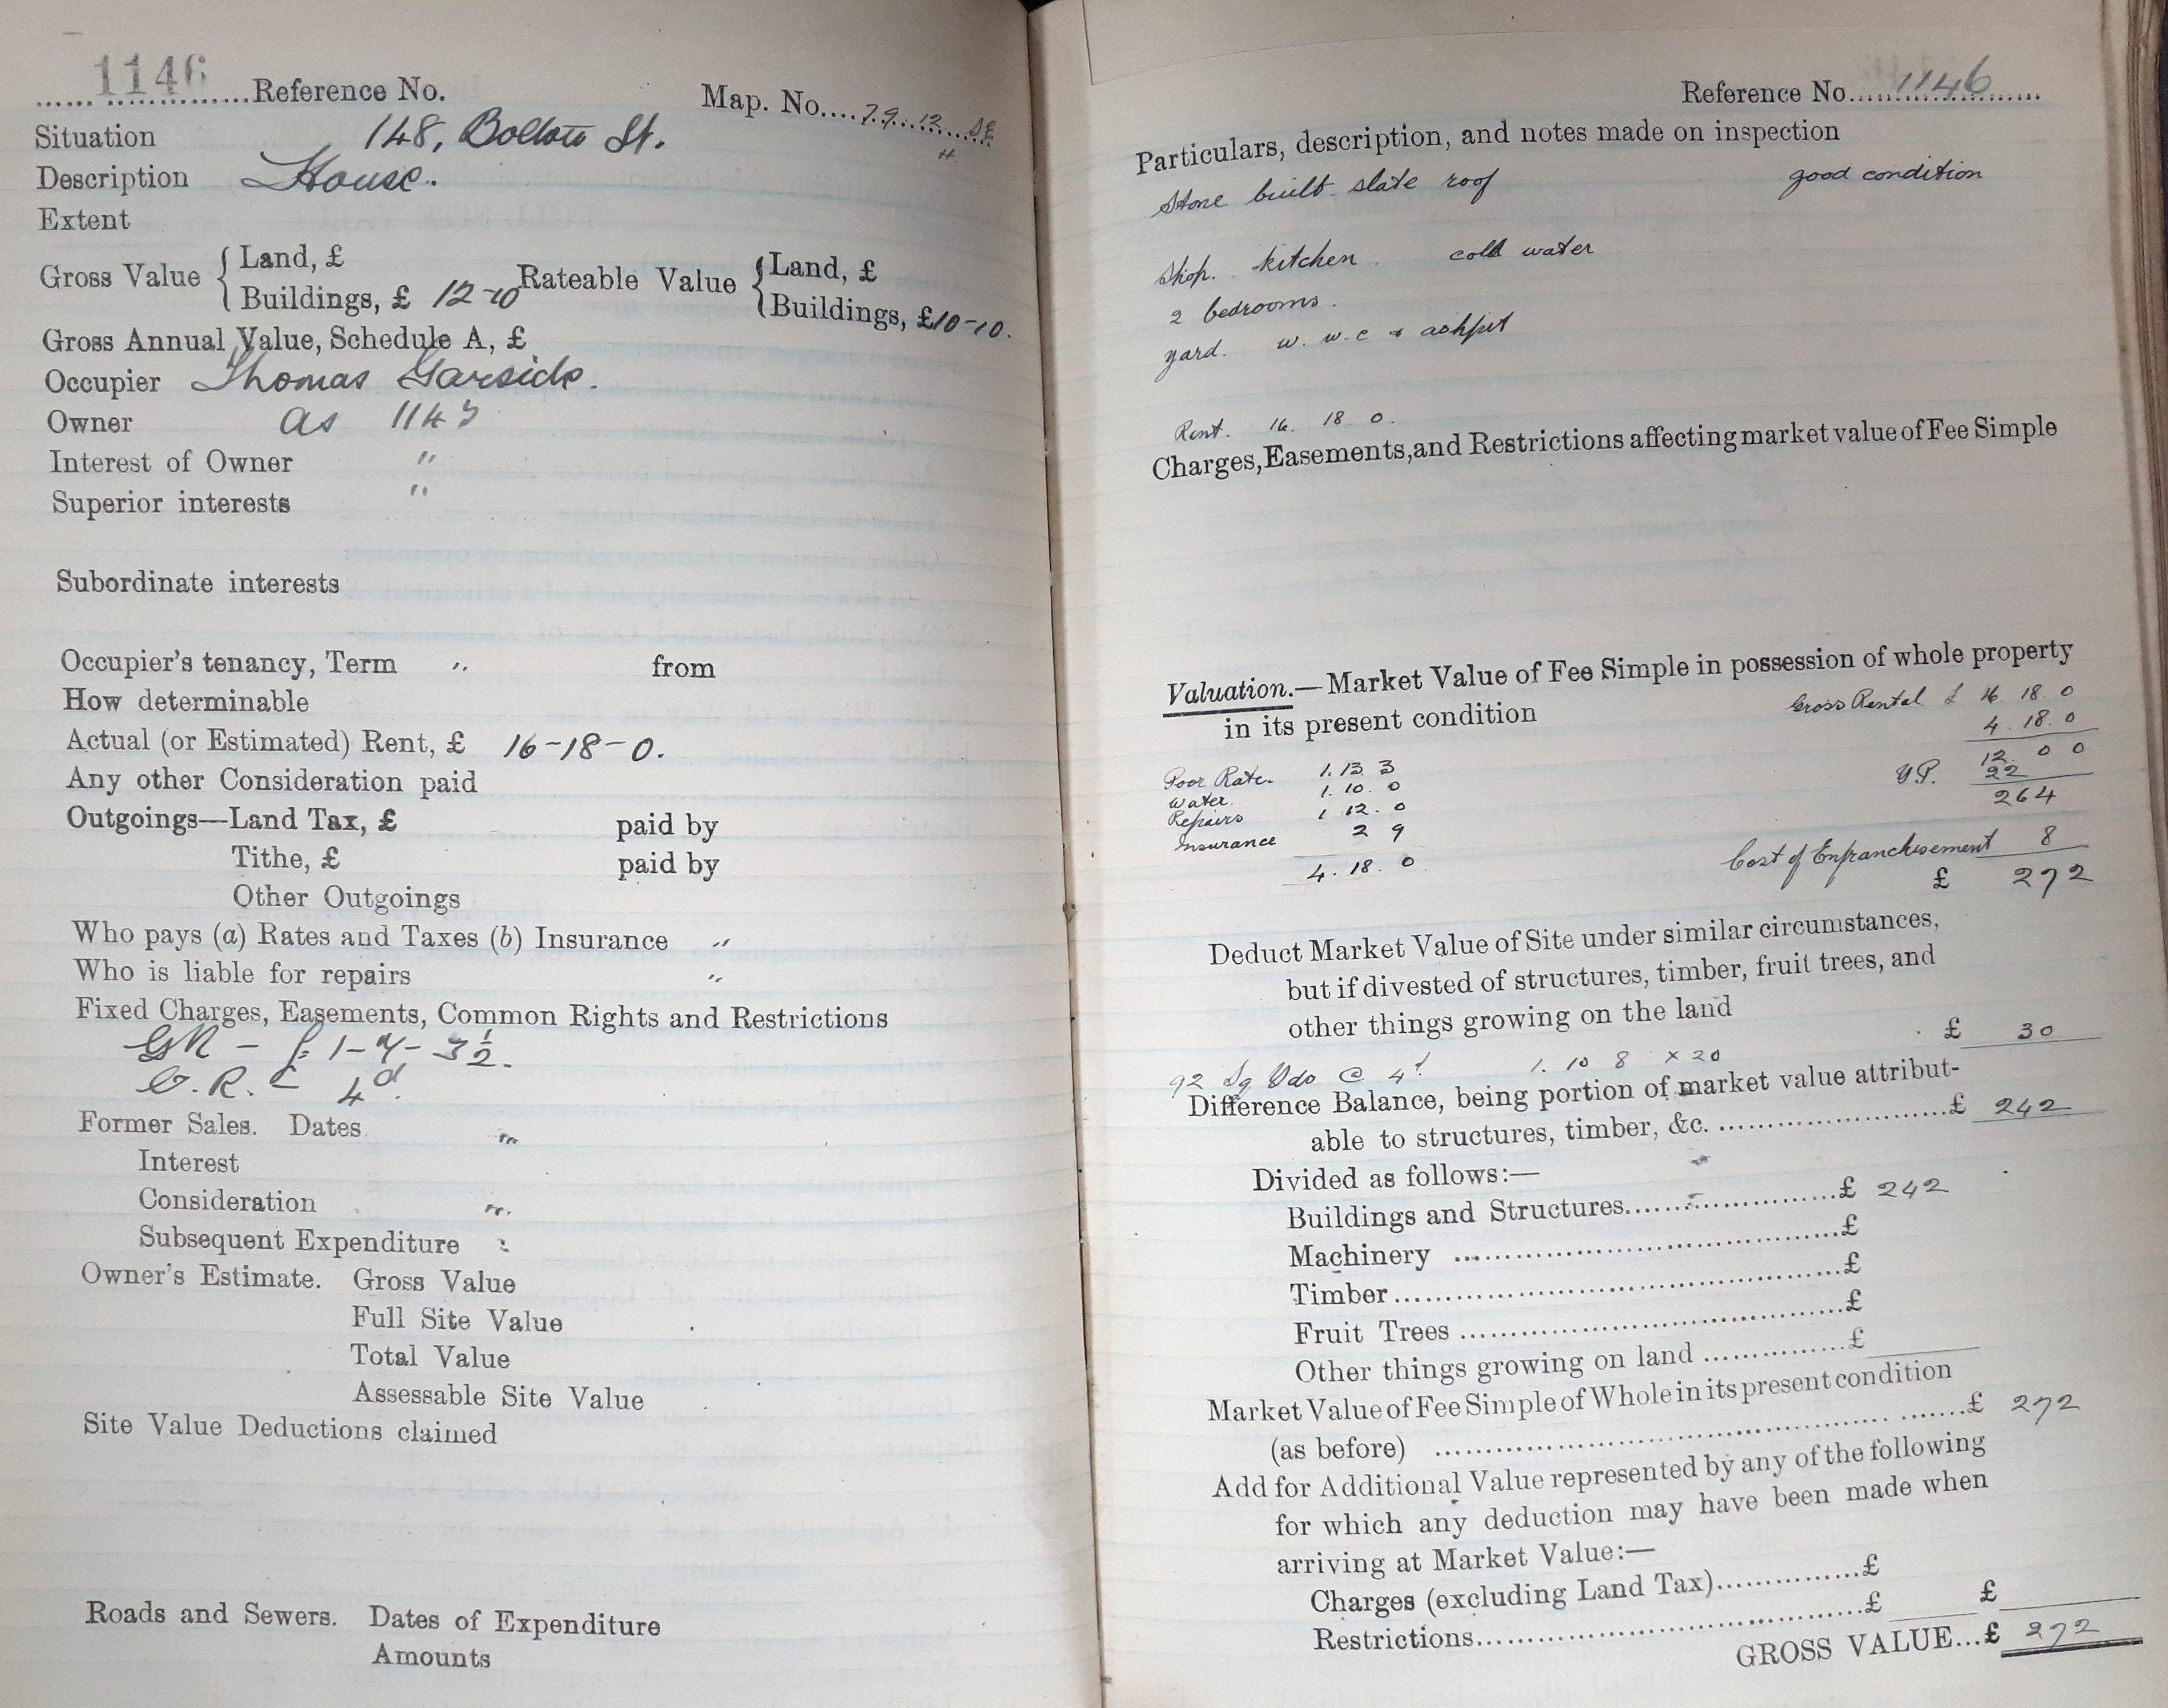 1146 Reference No. Map. No. 79. 12 SE
4
Situation 148, Bolton St.
Description House.
Extent
Gross Value { Land, £ Rateable Value { Land, £
Buildings, £ 12-10 Buildings, £10-10.
Gross Annual Value, Schedule A, £
Occupier Thomas Garside.
Owner as 1143
Interest of Owner "
Superior interests "
Subordinate interests
Occupier's tenancy, Term " from
How determinable
Actual (or Estimated) Rent, £ 16-18-0.
Any other Consideration paid
Outgoings—Land Tax, £ paid by
Tithe, £ paid by
Other Outgoings
Who pays (a) Rates and Taxes (b) Insurance "
Who is liable for repairs "
Fixed Charges, Easements, Common Rights and Restrictions
GR - £1-7-3½.
C.R. £ 4d.
Former Sales. Dates "
Interest
Consideration "
Subsequent Expenditure "
Owner's Estimate. Gross Value
Full Site Value
Total Value
Assessable Site Value
Site Value Deductions claimed
Roads and Sewers. Dates of Expenditure
Amounts
Reference No. 1146
Particulars, description, and notes made on inspection
Stone built slate roof good condition
Shop. kitchen. cold water
2 bedrooms.
yard. w. w.c & ashpit
Rent. 16. 18 0.
Charges, Easements, and Restrictions affecting market value of Fee Simple
Valuation.—Market Value of Fee Simple in possession of whole property
in its present condition Gross Rental £ 16. 18. 0
4. 18. 0
12. 0 0
Poor Rate. 1. 13 3 Y.P. 22
Water. 1. 10. 0 264
Repairs 1 12. 0
Insurance 2 9 Cost of Enfranchisement 8
4. 18. 0 £ 272
Deduct Market Value of Site under similar circumstances,
but if divested of structures, timber, fruit trees, and
other things growing on the land £ 30
92 Sq Yds @ 4d 1. 10 8 × 20
Difference Balance, being portion of market value attribut-
able to structures, timber, &c. £ 242
Divided as follows:—
Buildings and Structures £ 242
Machinery £
Timber £
Fruit Trees £
Other things growing on land £
Market Value of Fee Simple of Whole in its present condition
(as before) £ 272
Add for Additional Value represented by any of the following
for which any deduction may have been made when
arriving at Market Value:—
Charges (excluding Land Tax) £
Restrictions £ £
GROSS VALUE...£ 272